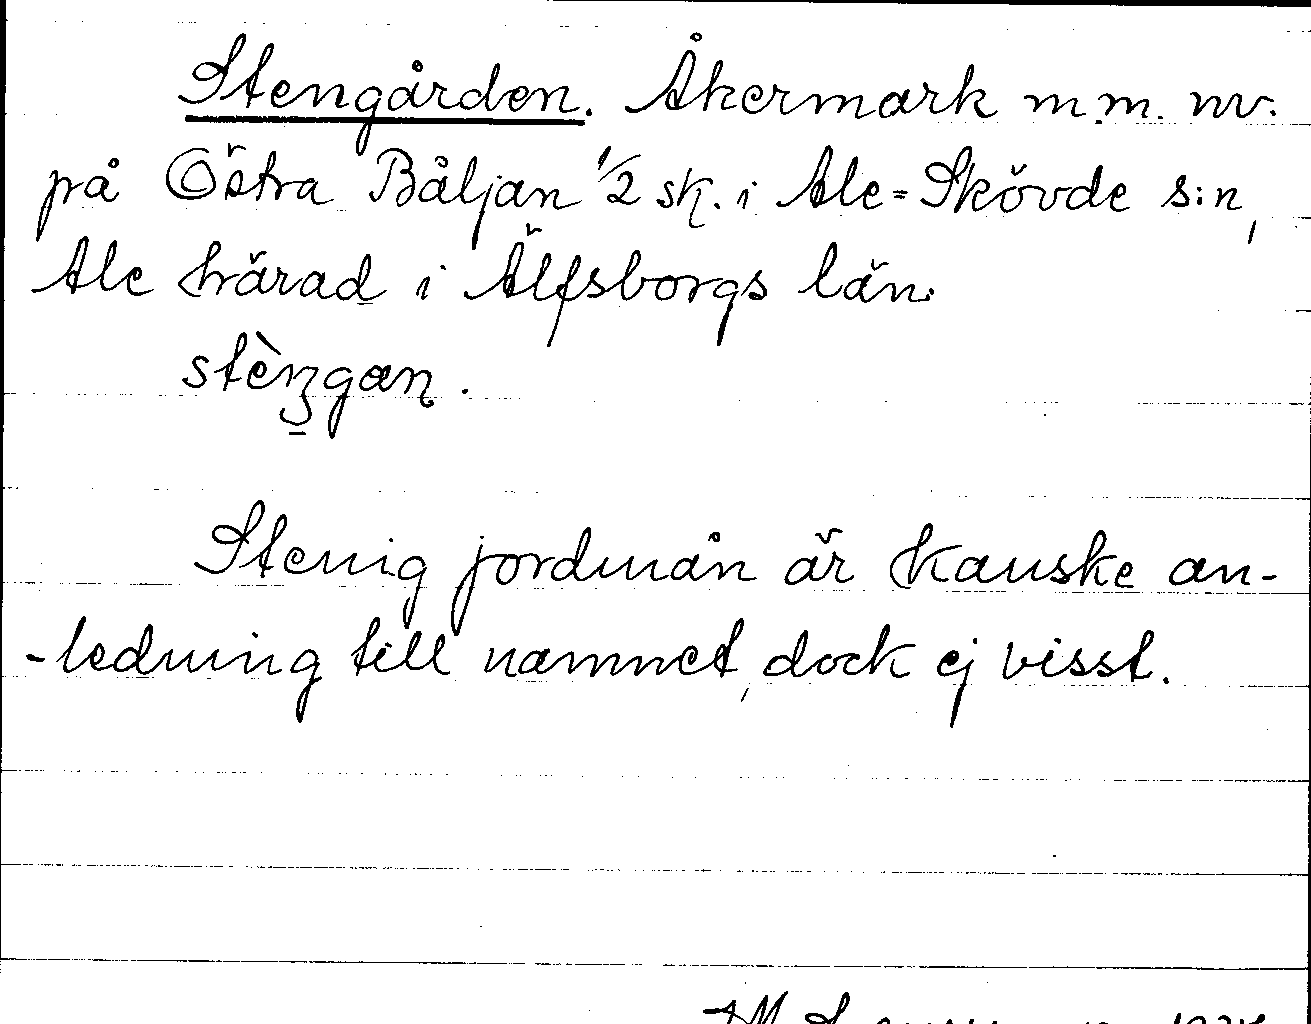 Stengården. Åkermark m.m. nv.
på Östra Båljan 1/2 sk. i Ale=Skövde s:n,
Ale härad i Älfsborgs län.
Stenig jordmån är kanske an-
-ledning till namnet, dock ej visst.